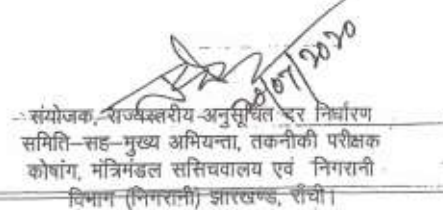 28/07/2020
संयोजक, राज्यस्तरीय अनुसूचित दर निर्धारण
समिति–सह–मुख्य अभियन्ता, तकनीकी परीक्षक
कोषांग, मंत्रिमंडल ससिचवालय एवं निगरानी
विभाग (निगरानी) झारखण्ड, राँची।